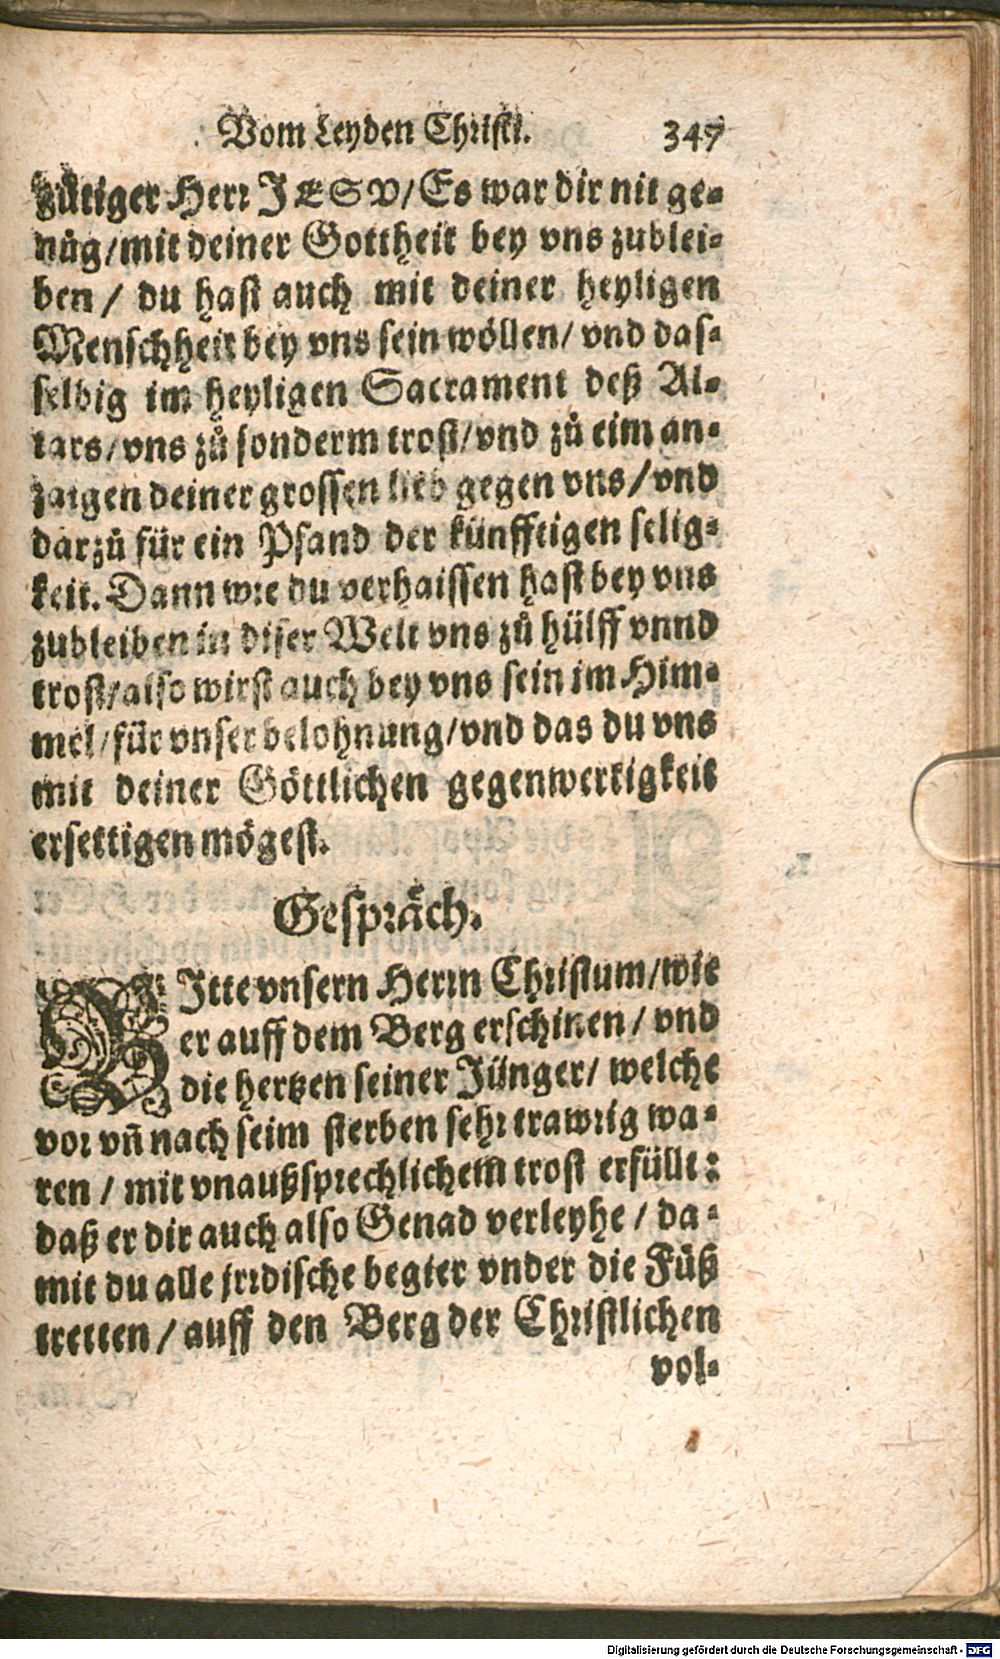 Vom Leyden Christi. 347
gütiger Herr JESV/ Es war dir nit ge-
nůg/ mit deiner Gottheit bey vns zublei-
ben / du hast auch mit deiner heyligen
Menschheit bey vns sein wöllen/ vnd das-
selbig im heyligen Sacrament deß Al-
tars/ vns zů sonderm trost/ vnd zů eim an-
zaigen deiner grossen lieb gegen vns/ vnd
darzů für ein Pfand der künfftigen selig-
keit. Dann wie du verhaissen hast bey vns
zubleiben in diser Welt vns zů hülff vnnd
trost/ also wirst auch bey vns sein im Him-
mel/ für vnser belohnung/ vnd das du vns
mit deiner Göttlichen gegenwertigkeit
ersettigen mögest.
Gespräch.
BJtte vnsern Herrn Christum/ wie
er auff dem Berg erschinen / vnd
die hertzen seiner Jünger/ welche
vor vñ nach seim sterben sehr trawrig wa-
ren / mit vnaußsprechlichem trost erfüllt:
daß er dir auch also Genad verleyhe / da-
mit du alle jrrdische begier vnder die Füß
tretten / auff den Berg der Christlichen
vol-
Digitalisierung gefördert durch die Deutsche Forschungsgemeinschaft - DFG